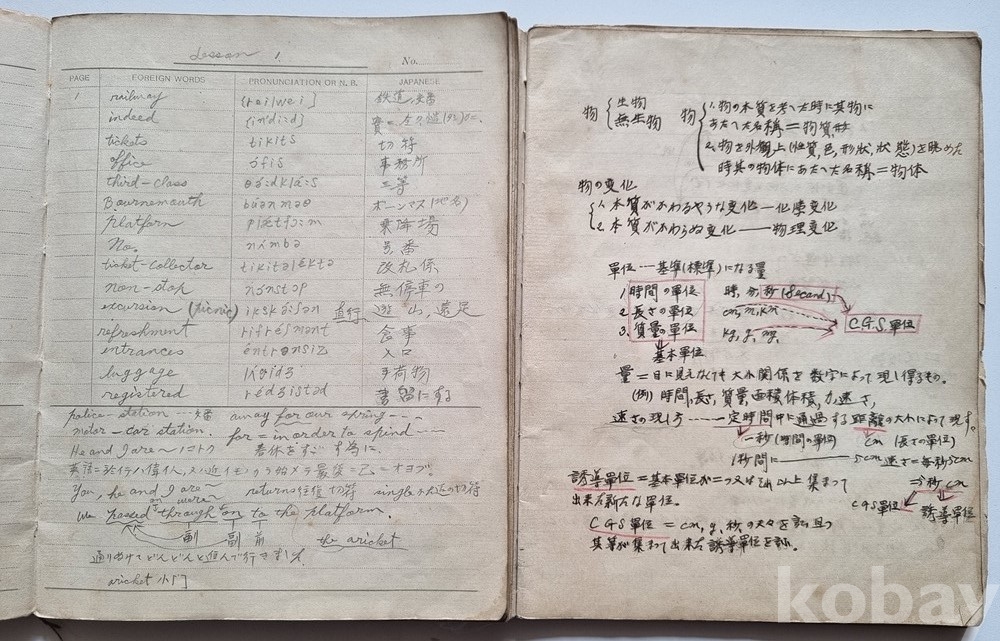 Lesson 1.
No.
PAGE FOREIGN WORDS PRONUNCIATION OR N. B. JAPANESE
1 railway [reilwei] 鉄道,
indeed [indi:d] 實ニ
tickets tikits 切符
office ófis 事務所
third-class θə́:dklá:s 三等
Bournemouth bɔ́ənməθ ボーンマス(地名)
platform plǽtfɔ:m 乗降場
No. nʌ́mbə 号番
ticket-collector tikitəlektə 改札係
non-stop nɔ́nstɔp 無停車の
excursion (picnic) ikskə́:ʃən 直行 遊山,遠足
refreshment rifréʃmənt 食事
entrances éntrənsiz 入口
luggage lʌ́gidʒ 手荷物
registered rédʒistəd 書留にする
police-station away for our spring---
motor-car station. for = in order to spind
He and I are 春休をすごす為に.
You, he and I are returns 往復切符 single 片道切符
were
We passed through on to the platform.
副 副 前
the wicket
通りぬけてどんどんと進んで行きました
wicket 小門
物 生物
無生物
物 1. 物の本質を考へた時に其物に
あたへた名稱=物質
2. 物を外觀上(性質,色,形狀,狀態)を眺めた
時其の物体にあたへた名稱=物体
物の変化
1. 本質がかわるやうな変化—化學変化
2. 本質がかわらぬ変化——物理変化
單位…基準(標準)になる量
1. 時間の單位 時,分,秒(Second)
2. 長さの單位 cm, m, Km
3. 質量の單位 kg, g, mg.
C.G.S.單位
基本單位
量=目に見えなくても大小関係を数字によって現し得るもの.
(例)時間,長さ,質量面積体積,力速さ,
速さの現し方……一定時間中に通過する距離の大小によって現す.
一秒(時間の單位) cm (長さの單位)
1秒間に———5cm 速さ=毎秒5cm
=5秒cm
誘導單位=基本單位が二つ又はそれ以上集まって
CGS單位 誘導單位
出来た新たな單位.
CGS單位=cm, g, 秒の
其等が集まって出来た誘導單位を
kobay